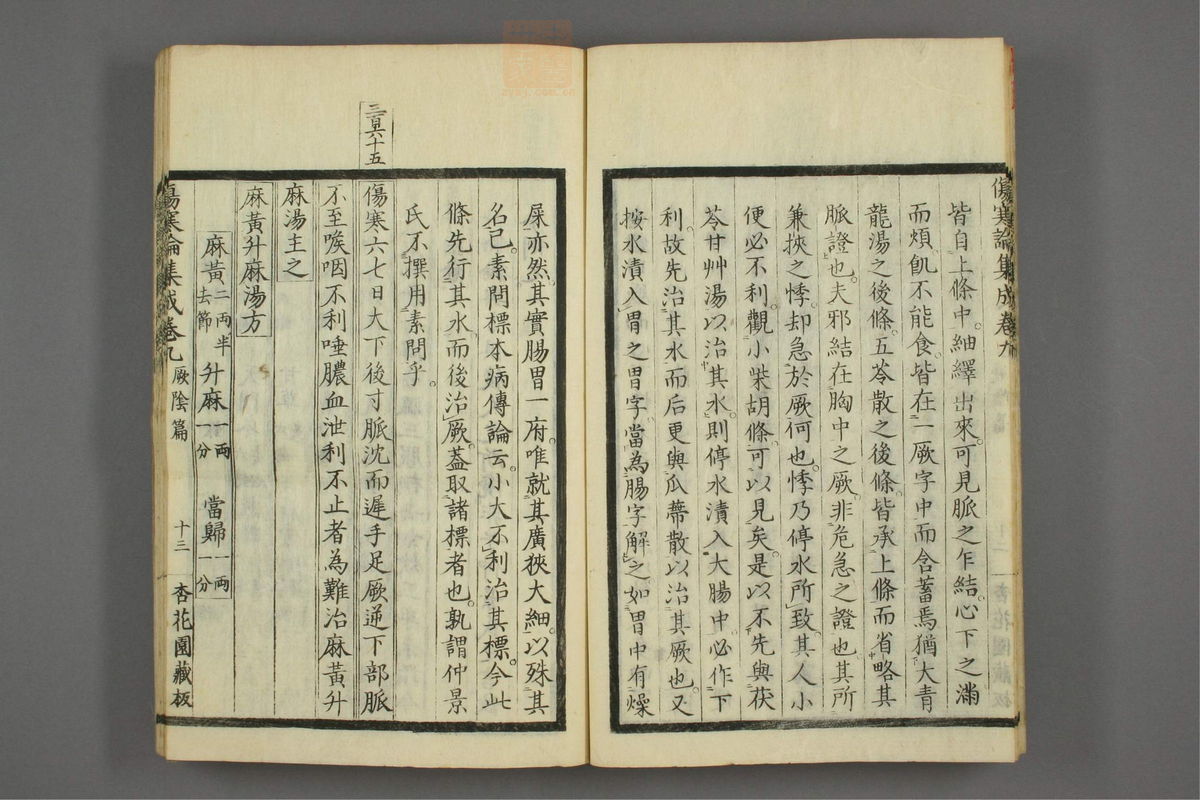 傷寒論集成卷九
皆自上條中紬繹出來可見脈之乍結心下之滿
而煩飢不能食皆在一厥字中而含蓄焉猶大青
龍湯之後條五苓散之後條皆承上條而省略其
脈證也夫邪結在胸中之厥非危急之證也其所
兼挾之悸却急於厥何也悸乃停水所致其人小
便必不利觀小柴胡條可以見矣是以不先與茯
苓甘艸湯以治其水則停水漬入大腸中必作下
利故先治其水而后更與瓜蔕散以治其厥也又
按水漬入胃之胃字當為腸字解之如胃中有燥
屎亦然其實腸胃一府唯就其廣狹大細以殊其
名已素問標本病傳論云小大不利治其標今此
條先行其水而後治厥蓋取諸標者也孰謂仲景
氏不撰用素問乎
三百六十五
傷寒六七日大下後寸脈沈而遲手足厥逆下部脈
不至喉咽不利唾膿血泄利不止者為難治麻黃升
麻湯主之
麻黃升麻湯方
麻黃二兩半去節 升麻一兩一分 當歸一兩一分
傷寒論集成卷九 厥陰篇 十三 杏花園藏板
zysj.com.cn